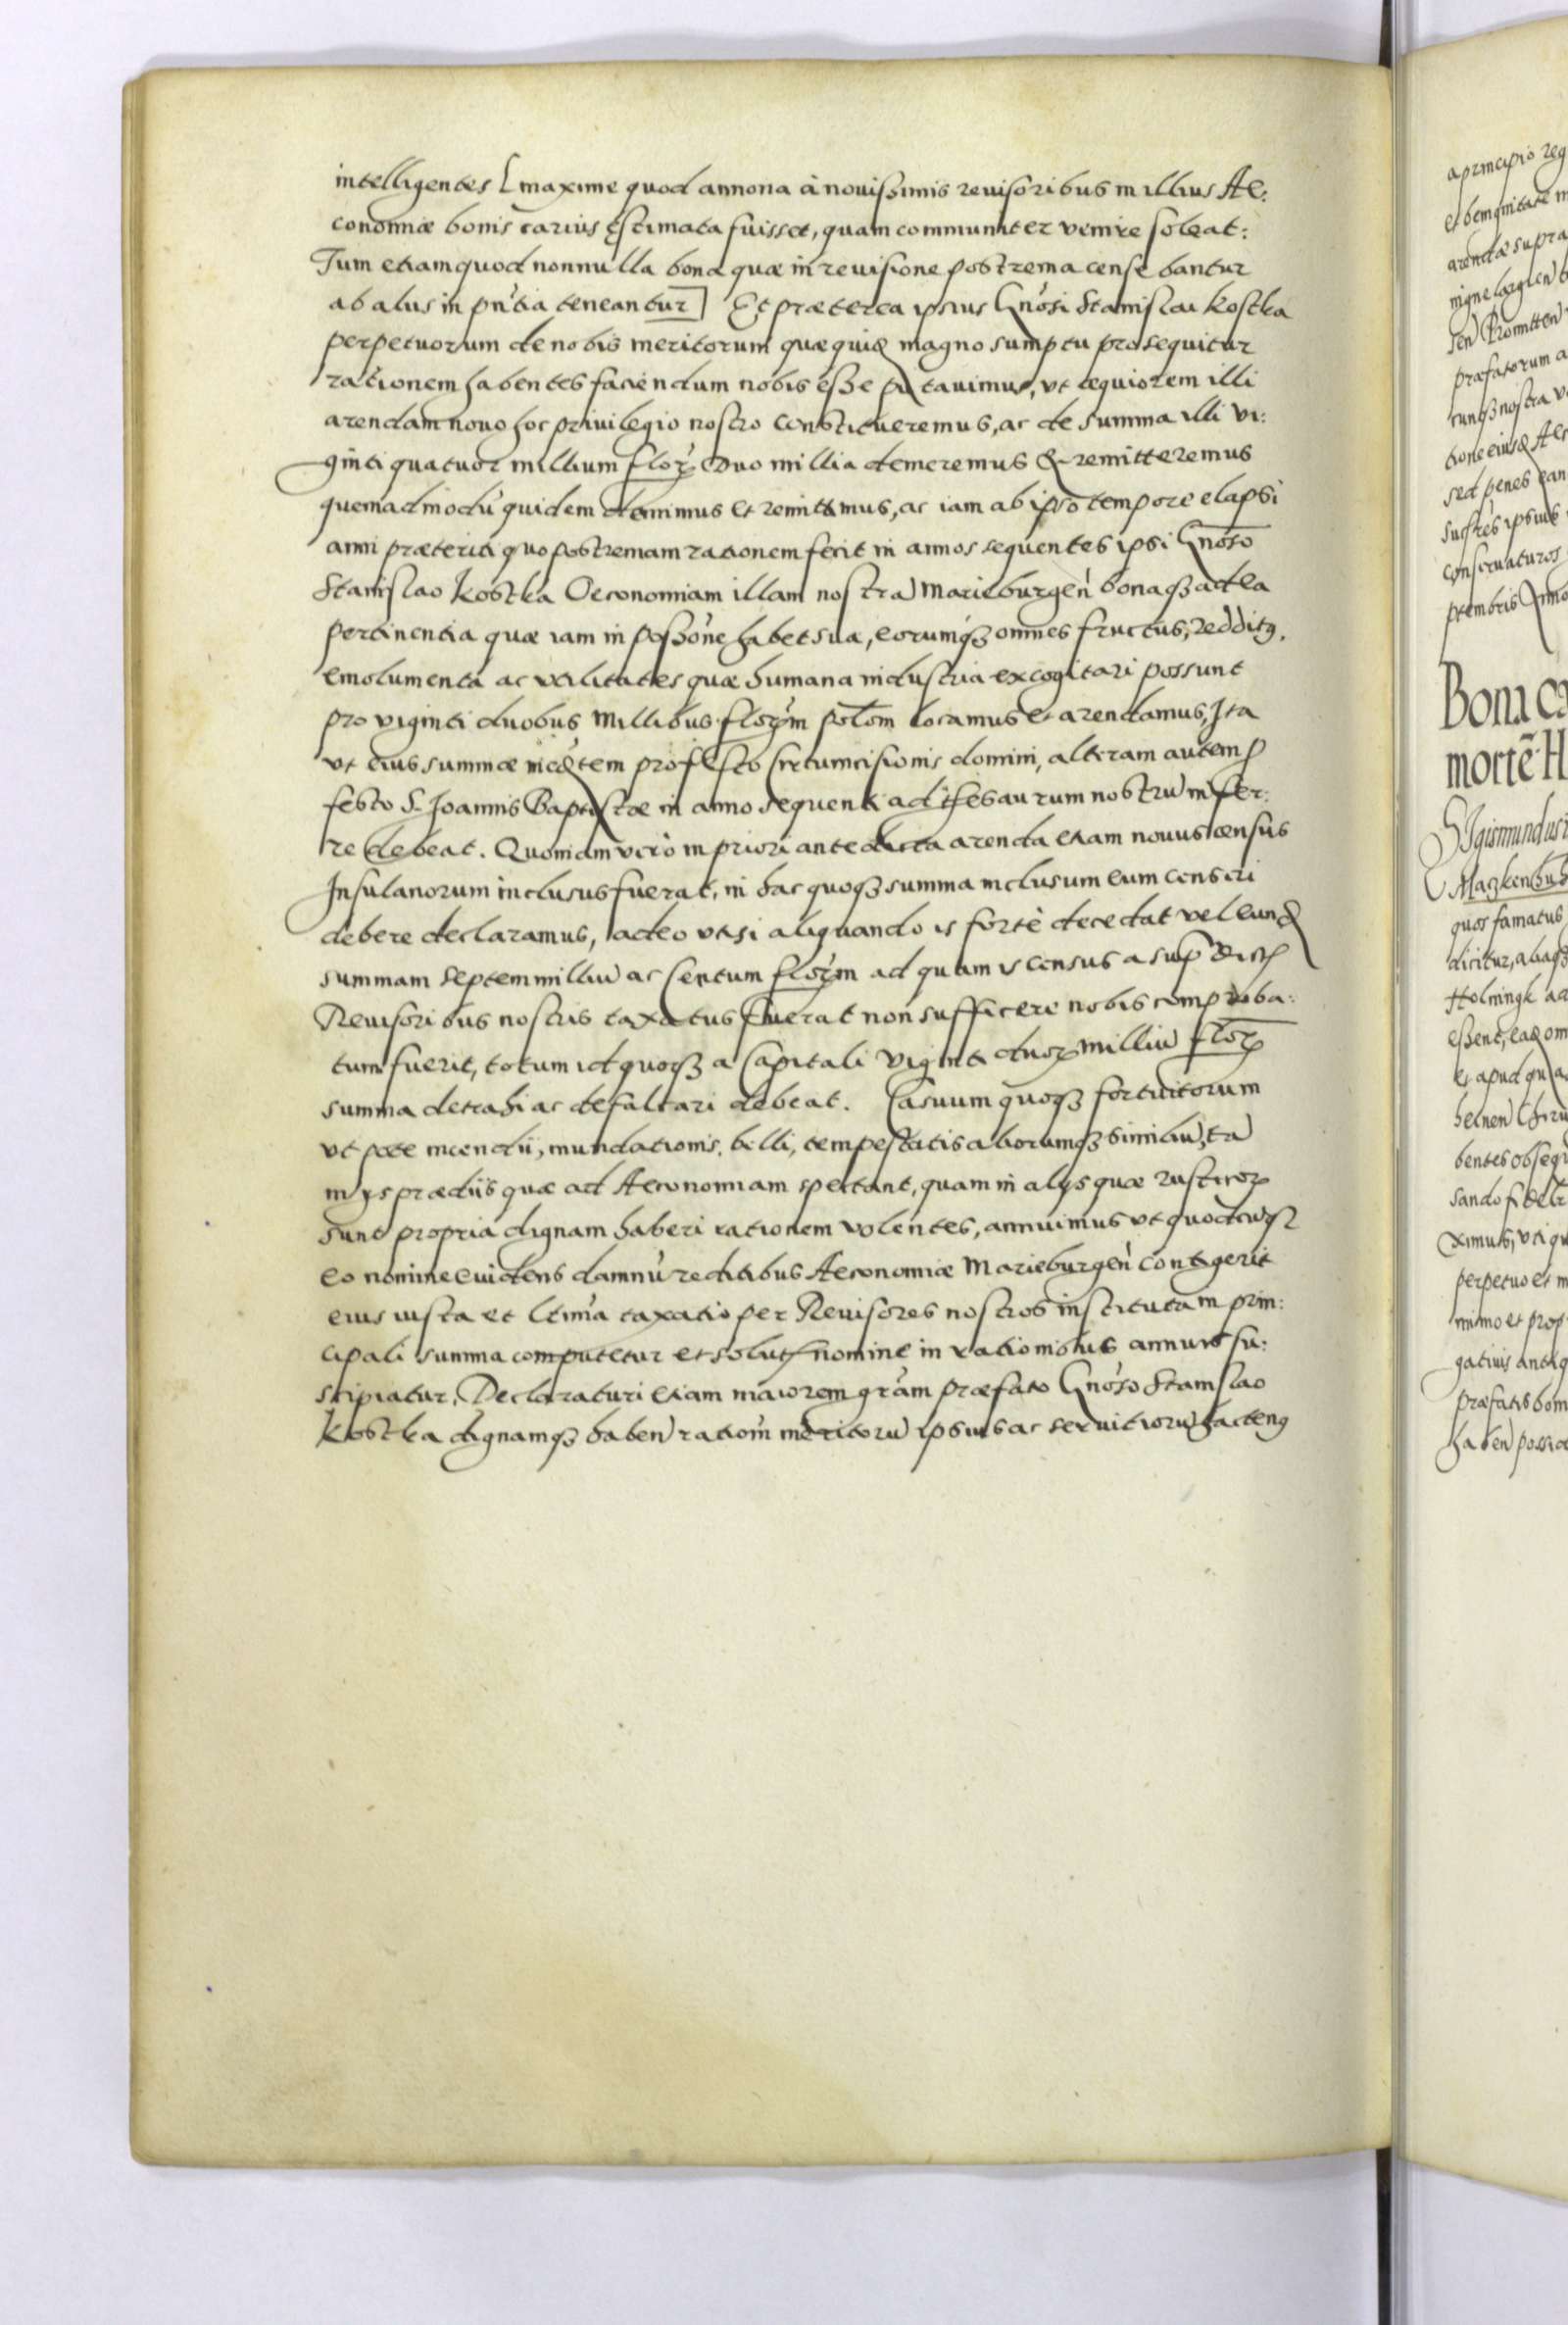 intelligentes [maxime quod annona à nouissimis reuisoribus in illius Ae:
conomiæ bonis carius ęstimata fuisset, quam communiter venire soleat:
Tum etiam quod nonnulla bona quæ in reuisione postrema censebantur
ab alijs in pn̄tia teneantur] Et præterea ipsius Gn̄osi Stanislai Kostka
perpetuorum de nobis meritorum quæ quidẽ magno sumptu prosequitur
rationem habentes faciendum nobis esse putauimus, vt æquiorem illi
arendam nouo hoc priuilegio nostro constitueremus, ac de summa illi vi:
ginti quatuor millium floꝝ Duo millia demeremus & remitteremus
quemadmodū quidem demimus et remittimus, ac iam ab ipso tempore elapsi
anni præteriti quo postremam rationem fecit in annos sequentes ipsi Gn̄oso
Stanislao Kostka Oeconomiam illam nostrã Marieburgeñ bonaqꝫ ad ea
pertinentia quæ iam in possōne habet sua, eorumqꝫ omnes fructus, redditꝰ,
emolumenta ac vtilitates quæ humana industria excogitari possunt
pro viginti duobus Millibus floꝝm polōm locamus et arendamus, Ita
vt eius summæ medietẽm pro festo Circumcisionis domini, alteram autem ꝓ
festo S. Joannis Baptistæ in anno sequenti ad thesaurum nostrū infer:
re debeat. Quoniam vero in priori antedicta arenda etiam nouus census
Insulanorum inclusus fuerat, in hac quoqꝫ summa inclusum eum censeri
debere declaramus, adeo vt si aliquando is fortè decedat vel eundẽ
summam septem milliū ac Centum floꝝm ad quam is census a sup̃ dictis
Reuisoribus nostris taxatus fuerat non sufficere nobis comproba:
tum fuerit, totum id quoqꝫ a Capitali viginti duoꝝ milliū floꝝ
summa detrahi ac defalcari debeat. Casuum quoqꝫ fortuitorum
vt pote incendii, inundationis, belli, tempestatis aliorumqꝫ similiū, tã
in ijs prædiis quæ ad Aeconomiam spectant, quam in alijs quæ rusticoꝝ
sunt propria dignam haberi rationem volentes, annuimus vt quodcūqꝫ
eo nomine euidens damnū reditibus Aeconomiæ Marieburgeñ contigerit
eius iusta et ltīma taxatio per Reuisores nostros instituta in prin:
cipali summa computetur et solutꝭ nomine in rationibus annuis su:
scipiatur. Declaraturi etiam maiorem grãm præfato Gn̄oso Stanislao
Kostka dignamqꝫ habeñ ratiōm meritorū ipsius ac seruitiorū hactenꝰ